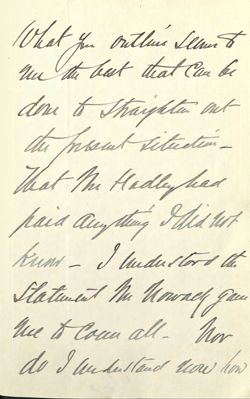 What you outline seems to
me the best that can be
done to straighten out
the present situation -
That Mr Hadley had
paid anything I did not
know - I understood the
statement Mr Nowack gave
me to cover all - Nor
do I understand now how